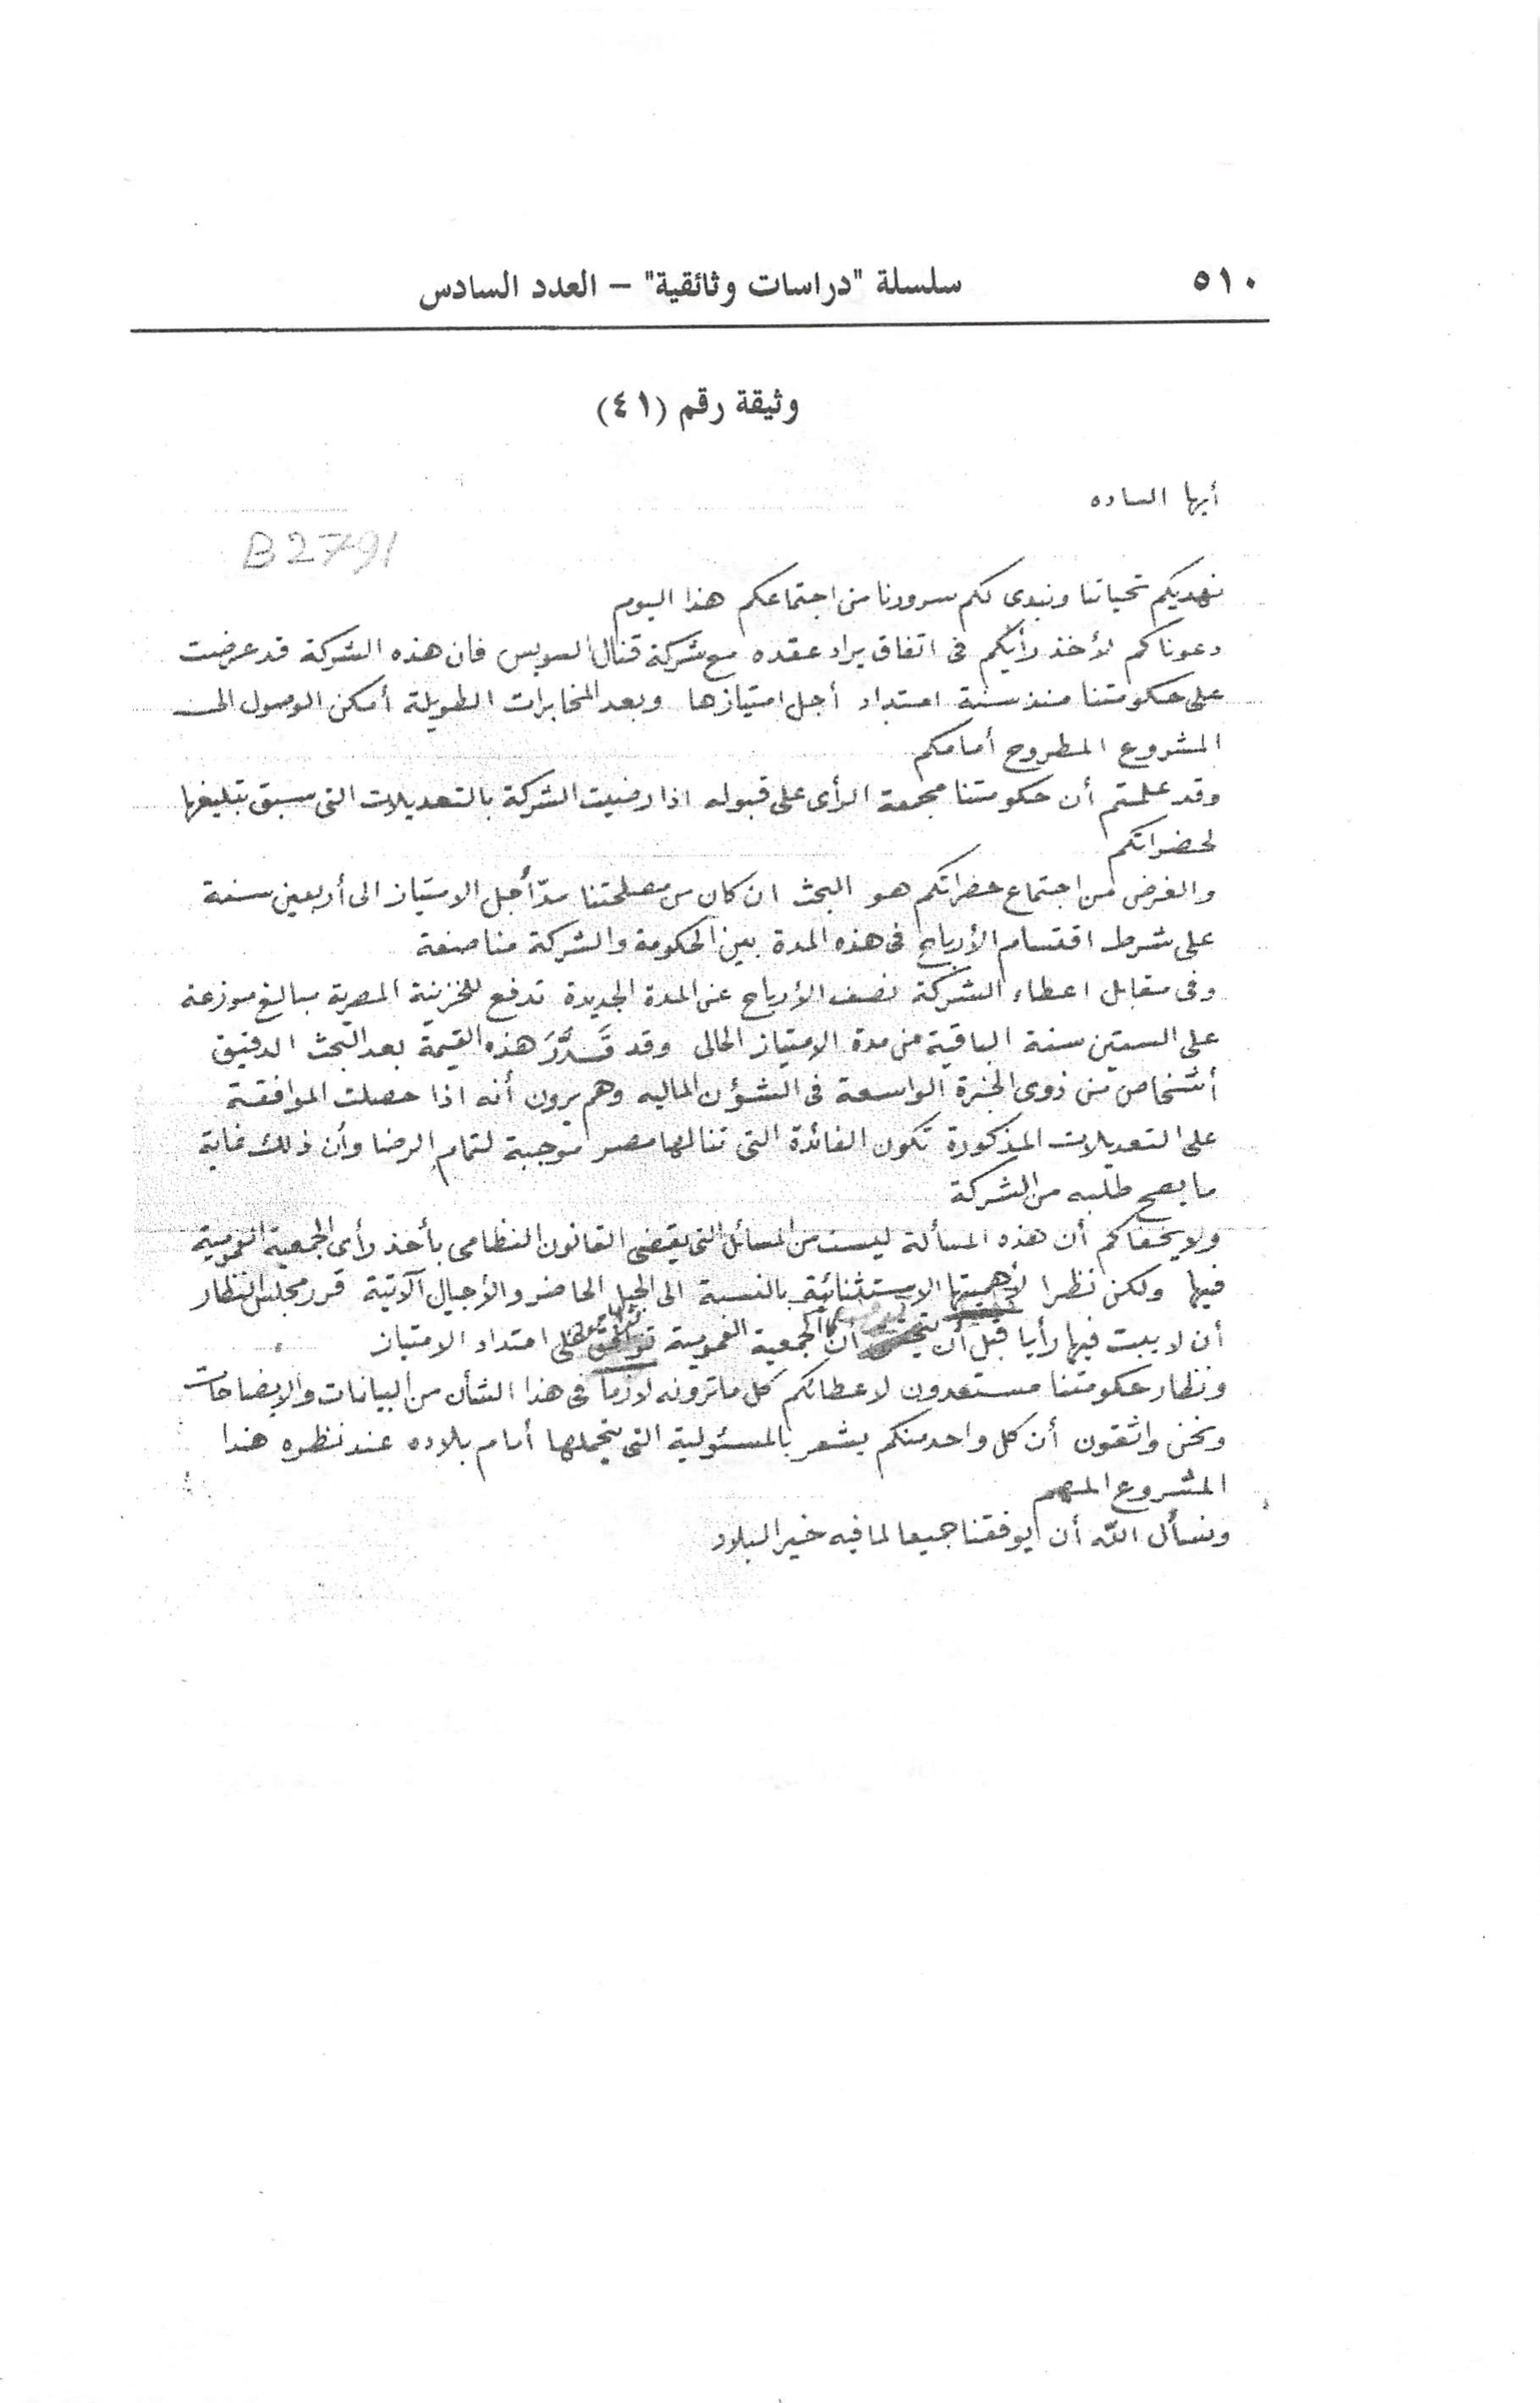 ٥١٠
سلسلة "دراسات وثائقية" – العدد السادس
وثيقة رقم (٤١)
أيها الساده
B2791
نهديكم تحياتنا ونبدى لكم سرورنا من اجتماعكم هذا اليوم
دعوناكم لأخذ رأيكم فى اتفاق يراد عقده مع شركة قنال السويس فان هذه الشركة قد عرضت
على حكومتنا منذ سنة امتداد أجل امتيازها وبعد المخابرات الطويلة أمكن الوصول الى
المشروع المطروح أمامكم
وقد علمتم أن حكومتنا مجمعة الرأى على قبوله اذا رضيت الشركة بالتعديلات التى سبق تبليغها
لحضراتكم
والغرض من اجتماع حضراتكم هو البحث ان كان من مصلحتنا مدّ أجل الامتياز الى أربعين سنة
على شرط اقتسام الأرباح فى هذه المدة بين الحكومة والشركة مناصفة
وفى مقابل اعطاء الشركة نصف الأرباح عن المدة الجديدة تدفع للخزينة المصرية مبالغ موزعة
على الستين سنة الباقية من مدة الامتياز الحالى وقد قَدَّرَ هذه القيمة بعد البحث الدقيق
أشخاص من ذوى الخبرة الواسعة فى الشؤن الماليه وهم يرون أنه اذا حصلت الموافقة
على التعديلات المذكورة تكون الفائدة التى تنالها مصر موجبة لتمام الرضا وأن ذلك غاية
ما يصح طلبه من الشركة
ولا يخفاكم أن هذه المسألة ليست من المسائل التى يقضى القانون النظامى بأخذ رأى الجمعية العمومية
فيها ولكن نظرا لأهميتها الاستثنائية بالنسبة الى الجيل الحاضر والأجيال الآتية قرر مجلس النظار
أن لا يبت فيها رأيا قبل أن الجمعية العمومية على امتداد الامتياز
ونظار حكومتنا مستعدون لاعطائكم كل ما ترونه لازما فى هذا الشأن من البيانات والايضاحات
ونحن واثقون أن كل واحد منكم يشعر بالمسئولية التى يتحملها أمام بلاده عند نظره هذا
المشروع المهم
ونسأل الله أن يوفقنا جميعا لما فيه خير البلاد